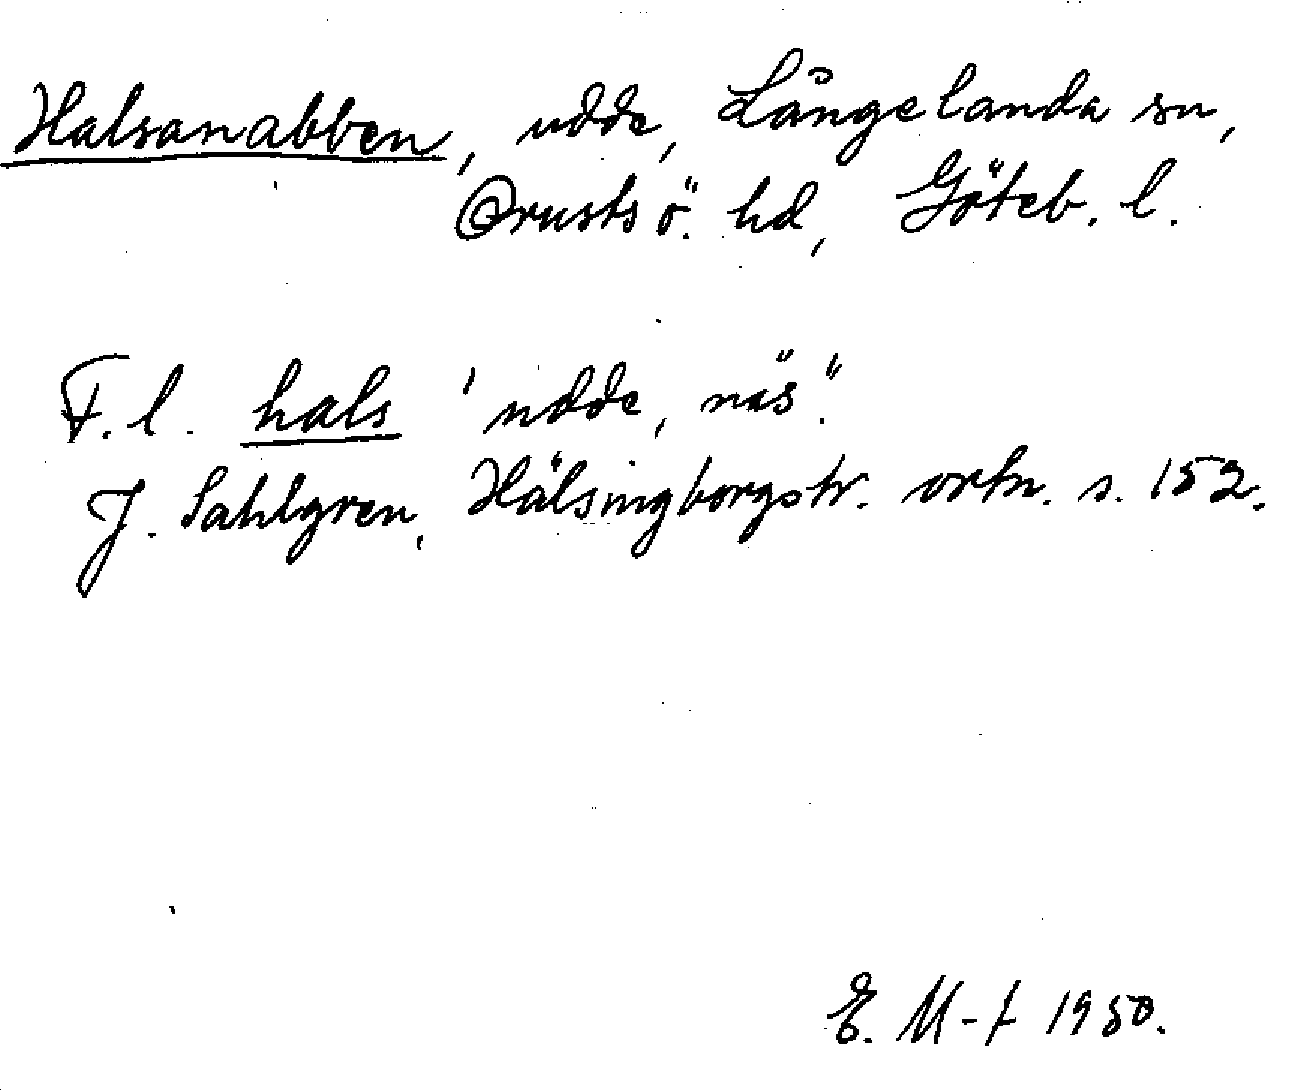 Halsanabben, udde, Långelanda sn,
Orusts ö. hd, Göteb. l.
F. l. hals 'udde, näs".
J. Sahlgren, Hälsingborgstr. ortn. s. 152.
E. M-t 1950.